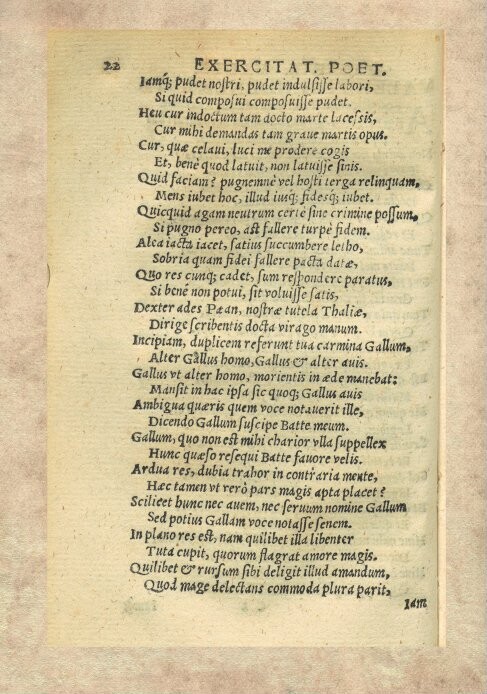 22 EXERCITAT. POET.
Iamq́; pudet nostri, pudet indulsisse labori,
Si quid composui composuisse pudet.
Heu cur indoctum tam docto marte lacessis,
Cur mihi demandas tam graue martis opus.
Cur, quæ celaui, luci me prodere cogis
Et, benè quod latuit, non latuisse sinis.
Quid faciam? pugnemnè vel hosti terga relinquam,
Mens iubet hoc, illud iusq́; fidesq́; iubet.
Quicquid agam neutrum certè sine crimine possum,
Si pugno pereo, ast fallere turpè fidem.
Alea iacta iacet, satius succumbere letho,
Sobria quam fidei fallere pacta datæ,
Quo res cunq́; cadet, sum respondere paratus,
Si benè non potui, sit voluisse satis,
Dexter ades Pæan, nostræ tutela Thaliæ,
Dirige scribentis docta virago manum.
Incipiam, duplicem referunt tua carmina Gallum,
Alter Gallus homo, Gallus & alter auis.
Gallus vt alter homo, morientis in æde manebat:
Mansit in hac ipsa sic quoq́; Gallus auis
Ambigua quæris quem voce notauerit ille,
Dicendo Gallum suscipe Batte meum.
Gallum, quo non est mihi charior vlla suppellex
Hunc quæso resequi Batte fauore velis.
Ardua res, dubia trahor in contraria mente,
Hæc tamen vt rerò pars magis apta placet?
Scilicet hunc nec auem, nec seruum nomine Gallum
Sed potius Gallam voce notasse senem.
In plano res est, nam quilibet illa libenter
Tuta cupit, quorum flagrat amore magis.
Quilibet & rursum sibi deligit illud amandum,
Quod mage delectans commoda plura parit,
Iam